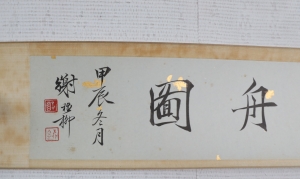 舟圖
甲辰冬月
謝稚柳